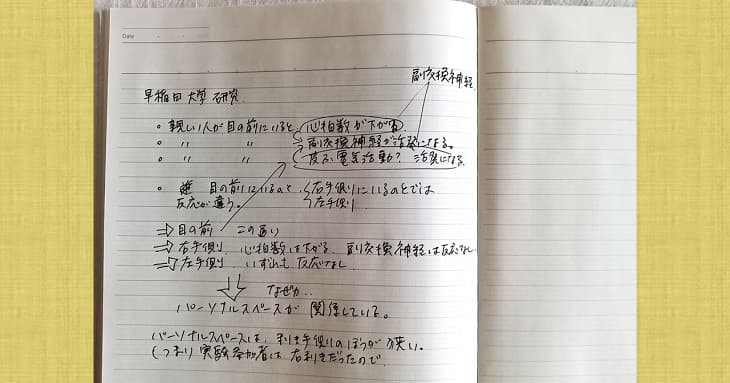 Date
副交換神経
早稲田大学 研究
・親しい人が目の前にいると 心拍数が下がる。
・〃 〃 副交換神経が活発になる。
・〃 〃 皮ふ電気活動? 活発になる
・目の前にいるのと 右手側にいるのとでは
反応が違う。 左手側
⇒ 目の前 この通り
⇒ 右手側 心拍数は下がる 副交換神経は反応なし
⇒ 左手側 いずれも反応なし
なぜか..
パーソナルスペースが関係している。
パーソナルスペースは、利き手側のほうが狭い。
(つまり 実験参加者は右利きだったので